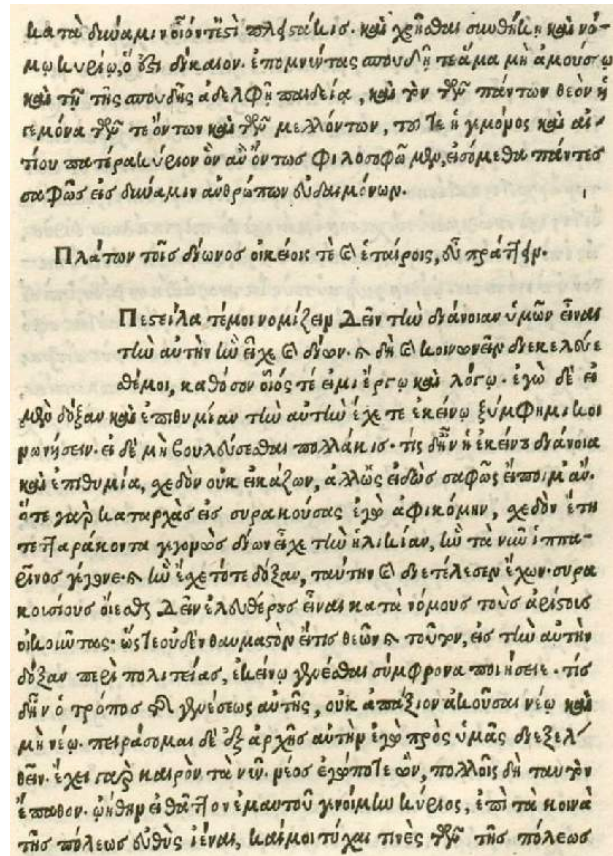 κατὰ δύναμιν οἷόν τ' ἐστὶ πλειστάκις. καὶ χρῆσθαι συνθήκῃ καὶ νό-
μῳ κυρίῳ, ὅ ἐστι δίκαιον. ἐπομνύντας σπουδῇ τε ἅμα μὴ ἀμούσῳ
καὶ τῇ τῆς σπουδῆς ἀδελφῇ παιδείᾳ, καὶ τὸν πάντων θεὸν ἡ
γεμόνα τῶν τε ὄντων καὶ τῶν μελλόντων, τοῦ τε ἡγεμόνος καὶ αἰ-
τίου πατέρα κύριον ὃν ἂν ὄντως φιλοσοφῶμεν, εἰσόμεθα πάντες
σαφῶς εἰς δύναμιν ἀνθρώπων εὐδαιμόνων.
Πλάτων τοῖς δίωνος οἰκείοις τὲ καὶ ἑταίροις, εὖ πράττειν.
Πεστείλατέ μοι νομίζειν Δεῖν τὴν διάνοιαν ὑμῶν εἶναι
τὴν αὐτὴν ἣν εἶχε καὶ δίων. καὶ δὴ καὶ κοινωνεῖν διεκελεύε
σθέ μοι, καθόσον οἷός τέ εἰμι ἔργῳ καὶ λόγῳ. ἐγὼ δὲ εἰ
μὲν δόξαν καὶ ἐπιθυμίαν τὴν αὐτὴν ἔχετε ἐκείνῳ ξύμφημι κοι
νωνήσειν. εἰ δὲ μὴ βουλεύσεσθαι πολλάκις. τίς δ' ἦν ἡ ἐκείνου διάνοια
καὶ ἐπιθυμία, σχεδὸν οὐκ εἰκάζων, ἀλλ' ὡς εἰδὼς σαφῶς εἴποιμ' ἄν.
ὅτε γὰρ καταρχὰς εἰς συρακούσας ἐγὼ ἀφικόμην, σχεδὸν ἔτη
τετταράκοντα γεγονὼς δίων εἶχε τὴν ἡλικίαν, ἣν τὰ νῦν ἱππα-
ρῖνος γέγονε. καὶ ἣν ἔσχε τότε δόξαν, ταύτην καὶ διετέλεσεν ἔχων. συρα
κοισίους οἴεσθαι Δεῖν ἐλευθέρους εἶναι κατὰ νόμους τοὺς ἀρίστους
οἰκοῦντας. ὥστε οὐδὲν θαυμαστὸν εἴ τις θεῶν καὶ τοῦτον, εἰς τὴν αὐτὴν
δόξαν περὶ πολιτείας, ἐκείνῳ γενέσθαι σύμφρονα ποιήσειε. τίς
δ' ἦν ὁ τρόπος τῆς γενέσεως αὐτῆς, οὐκ ἀπάξιον ἀκοῦσαι νέῳ καὶ
μὴ νέῳ. πειράσομαι δὲ ἐξ ἀρχῆς αὐτὴν ἐγὼ πρὸς ὑμᾶς διεξελ-
θεῖν. ἔχει γὰρ καιρὸν τὰ νῦν. νέος ἐγώ ποτε ὢν, πολλοῖς δὴ ταυτὸν
ἔπαθον. ᾠήθην εἰ θᾶττον ἐμαυτοῦ γενοίμην κύριος, ἐπὶ τὰ κοινὰ
τῆς πόλεως εὐθὺς ἰέναι, καί μοι τύχαι τινὲς τῶν τῆς πόλεως